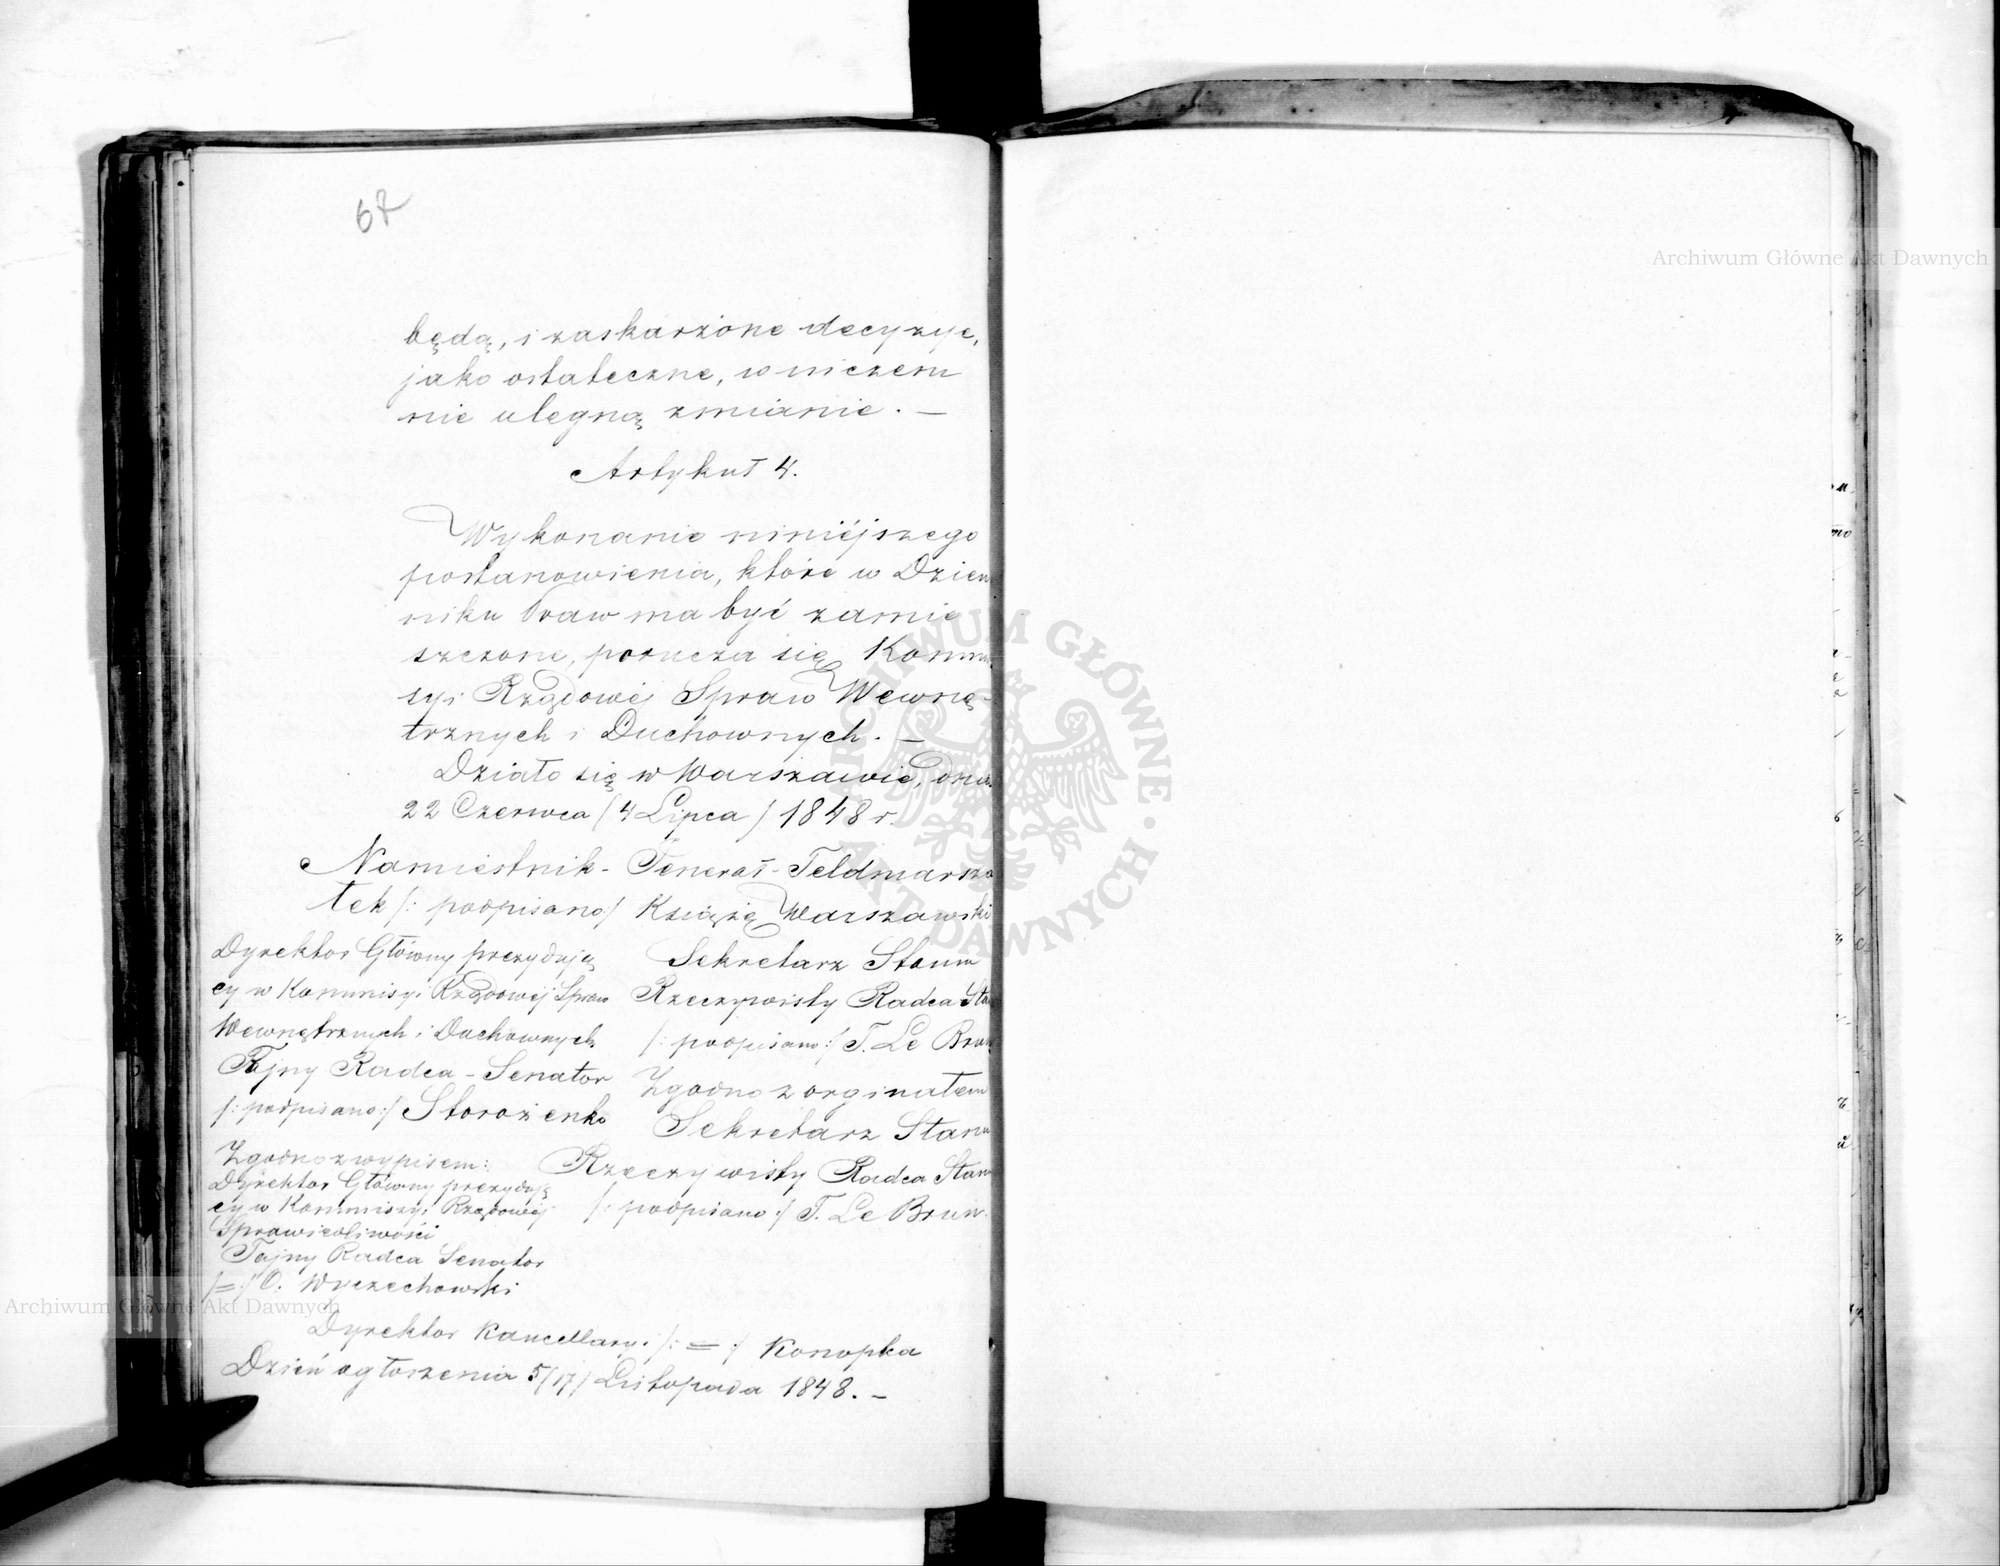 67
będą, i zaskarżone decyzye,
jako ostateczne, w niczem
nie ulegną zmianie. —
Artykuł 4.
Wykonanie niniéjszego
postanowienia, które w Dzien
niku Praw ma być zamie
szczone, porucza się Kommi
syi Rządowéj Spraw Wewnę-
trznych i Duchownych. —
Działo się w Warszawie, dnia
22 Czerwca (4 Lipca) 1848 r.
Namiestnik - Generał - Feldmarsza
łek /: podpisano:/ Książę Warszawski
Dyrektor Główny prezydują
cy w Kommisyi Rządowéj Spraw
Wewnętrznych i Duchownych
Tajny Radca - Senator
/: podpisano:/ Storożenko
Sekretarz Stanu
Rzeczywisty Radca Sta
/: podpisano:/ T. Le Brun
Zgodno z orginałem
Sekretarz Stanu
Rzeczywisty Radca Stanu
/: podpisano:/ T. Le Brun.
Zgodno z wypisem:
Dyrektor Główny prezydują
cy w Kommiszyi Rządowéj
Sprawiedliwości
Tajny Radca Senator
/=/ O. Wyczechowski
Dyrektor Kancellaryi /: = :/ Konopka
Dzień ogłoszenia 5/17/ Listopada 1848. –
Archiwum Główne Akt Dawnych
Archiwum Główne Akt Dawnych
ARCHIWUM GŁÓWNE AKT DAWNYCH